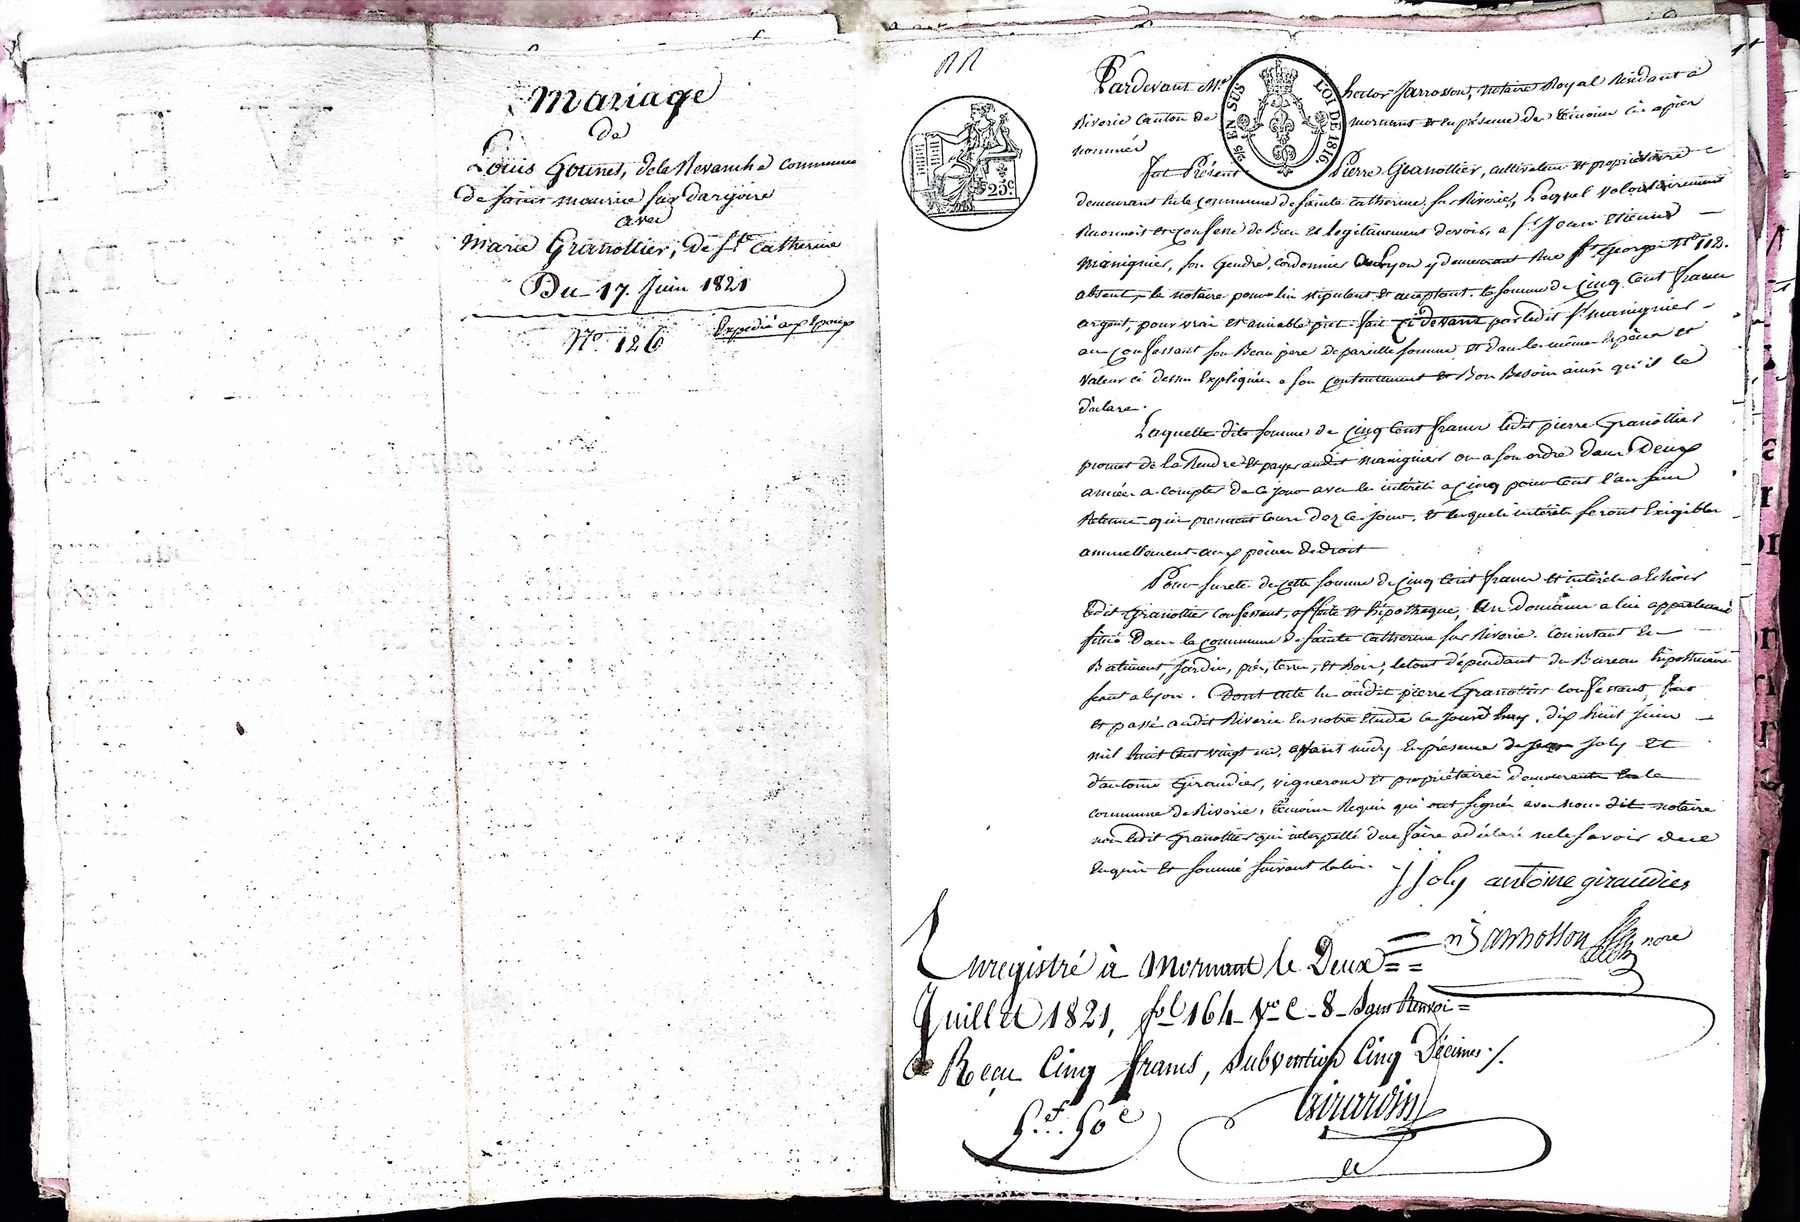 Mariage
de
Louis Gounet, de la Revanche commune
de saint maurice sur dargoire
avec
Marie Granottier, de Ste Catherine
Du 17. Juin 1821
No. 126
Expedié aux Epoux
Pardevant Me hector Jarrosson, notaire Royal Résidant à
Riverie canton de mornant et en présence des témoins ci apres
nommés
fut Présent Pierre Granottier, cultivateur et propriétaire
demeurant en la commune de sainte catherine sur Riverie, Lequel volontairement
Reconnoit et confesse de Bien et légitimement devoir, a sr Jean etienne
Manignier, son Gendre, cordonnier a Lyon y demeurant Rue St George No 112.
absent, le notaire pour lui stipulant et acceptant. la somme de cinq cent francs
argent, pour vrai et amiable prêt fait ci devant par ledit sr manignier
au confessant son Beau pere de pareille somme et dans les mêmes Espèces et
valeur ci dessus Expliquées a son contentement et Bon Besoin ainsi qu'il le
déclare.
Laquelle dite somme de cinq cent francs ledit pierre Granottier
promet de la Rendre et payer audit manignier ou a son ordre dans Deux
années a compter de ce jour avec les intérêts a cinq pour cent l'an sans
Retenue qui prennent cours dez ce jour, et lesquels intérêts seront Exigibles
annuellement aux peines de droit
Pour sureté de cette somme de cinq cent francs et intérêts a Echoir
ledit Granottier confessant, affecte et hipotheque, un domaine a lui appartenant
situé Dans la commune de sainte catherine sur Riverie. Consistant En
Batiment, Jardin, prés, terres, et Bois, le tout dépendant du Bureau hipothécaire
séant a lyon. Dont acte lu audit pierre Granottier confessant, fait
et passé audit Riverie En notre Etude ce jourd'huy, dix huit juin
mil huit cent vingt un, avant midy En présence de Joly et
d'antoine Giraudier, vignerons et propriétaires demeurants En la
commune de Riverie, témoins Requis qui ont signés avec nous dit notaire
non ledit Granottier qui interpellé de ce faire a déclaré ne le savoir de ce
Enquis et sommé suivant la loi.
J Joly antoine giraudier
Jarrosson nore
Enregistré à Mornant le Deux
Juillet 1821, fol 164 Vo C. 8 Sans Renvoi
Reçu Cinq francs, subvention Cinq Décimes ./.
5f. 50c
Girardin
EN SUS
LOI DE 1816.
25c